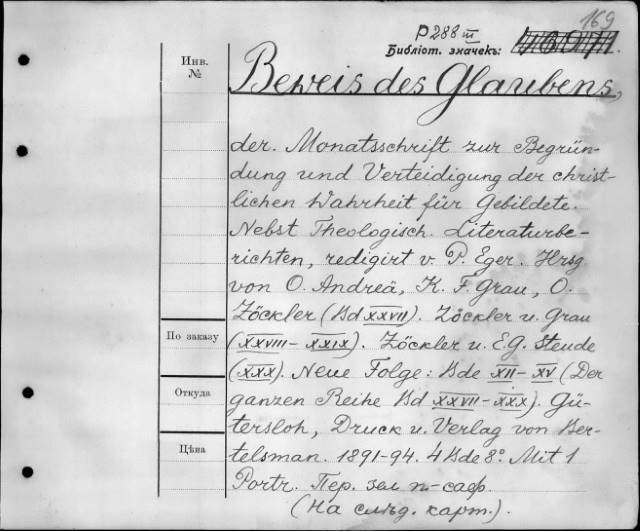 169
P 288 III
Библіот. значекъ:
Инв. №
Beweis des Glaubens,
der. Monatsschrift zur Begrün-
dung und Verteidigung der christ-
lichen Wahrheit für Gebildete.
Nebst Theologisch. Literaturbe-
richten, redigirt v. P. Eger. Hrsg
von O. Andreä, K. F. Grau, O.
Zöckler (Bd XXVII). Zöckler u. Grau
По заказу
(XXVIII–XXIX). Zöckler u. E.G. Steude
(XXX). Neue Folge: Bde XII–XV (Der
Откуда
ganzen Reihe Bd XXVII–XXX). Gü-
tersloh, Druck u. Verlag von Ber-
Цѣна
telsman. 1891-94. 4 Bde 8°. Mit 1
Portr. Пер. зел п-саф.
(На слѣд. карт.).